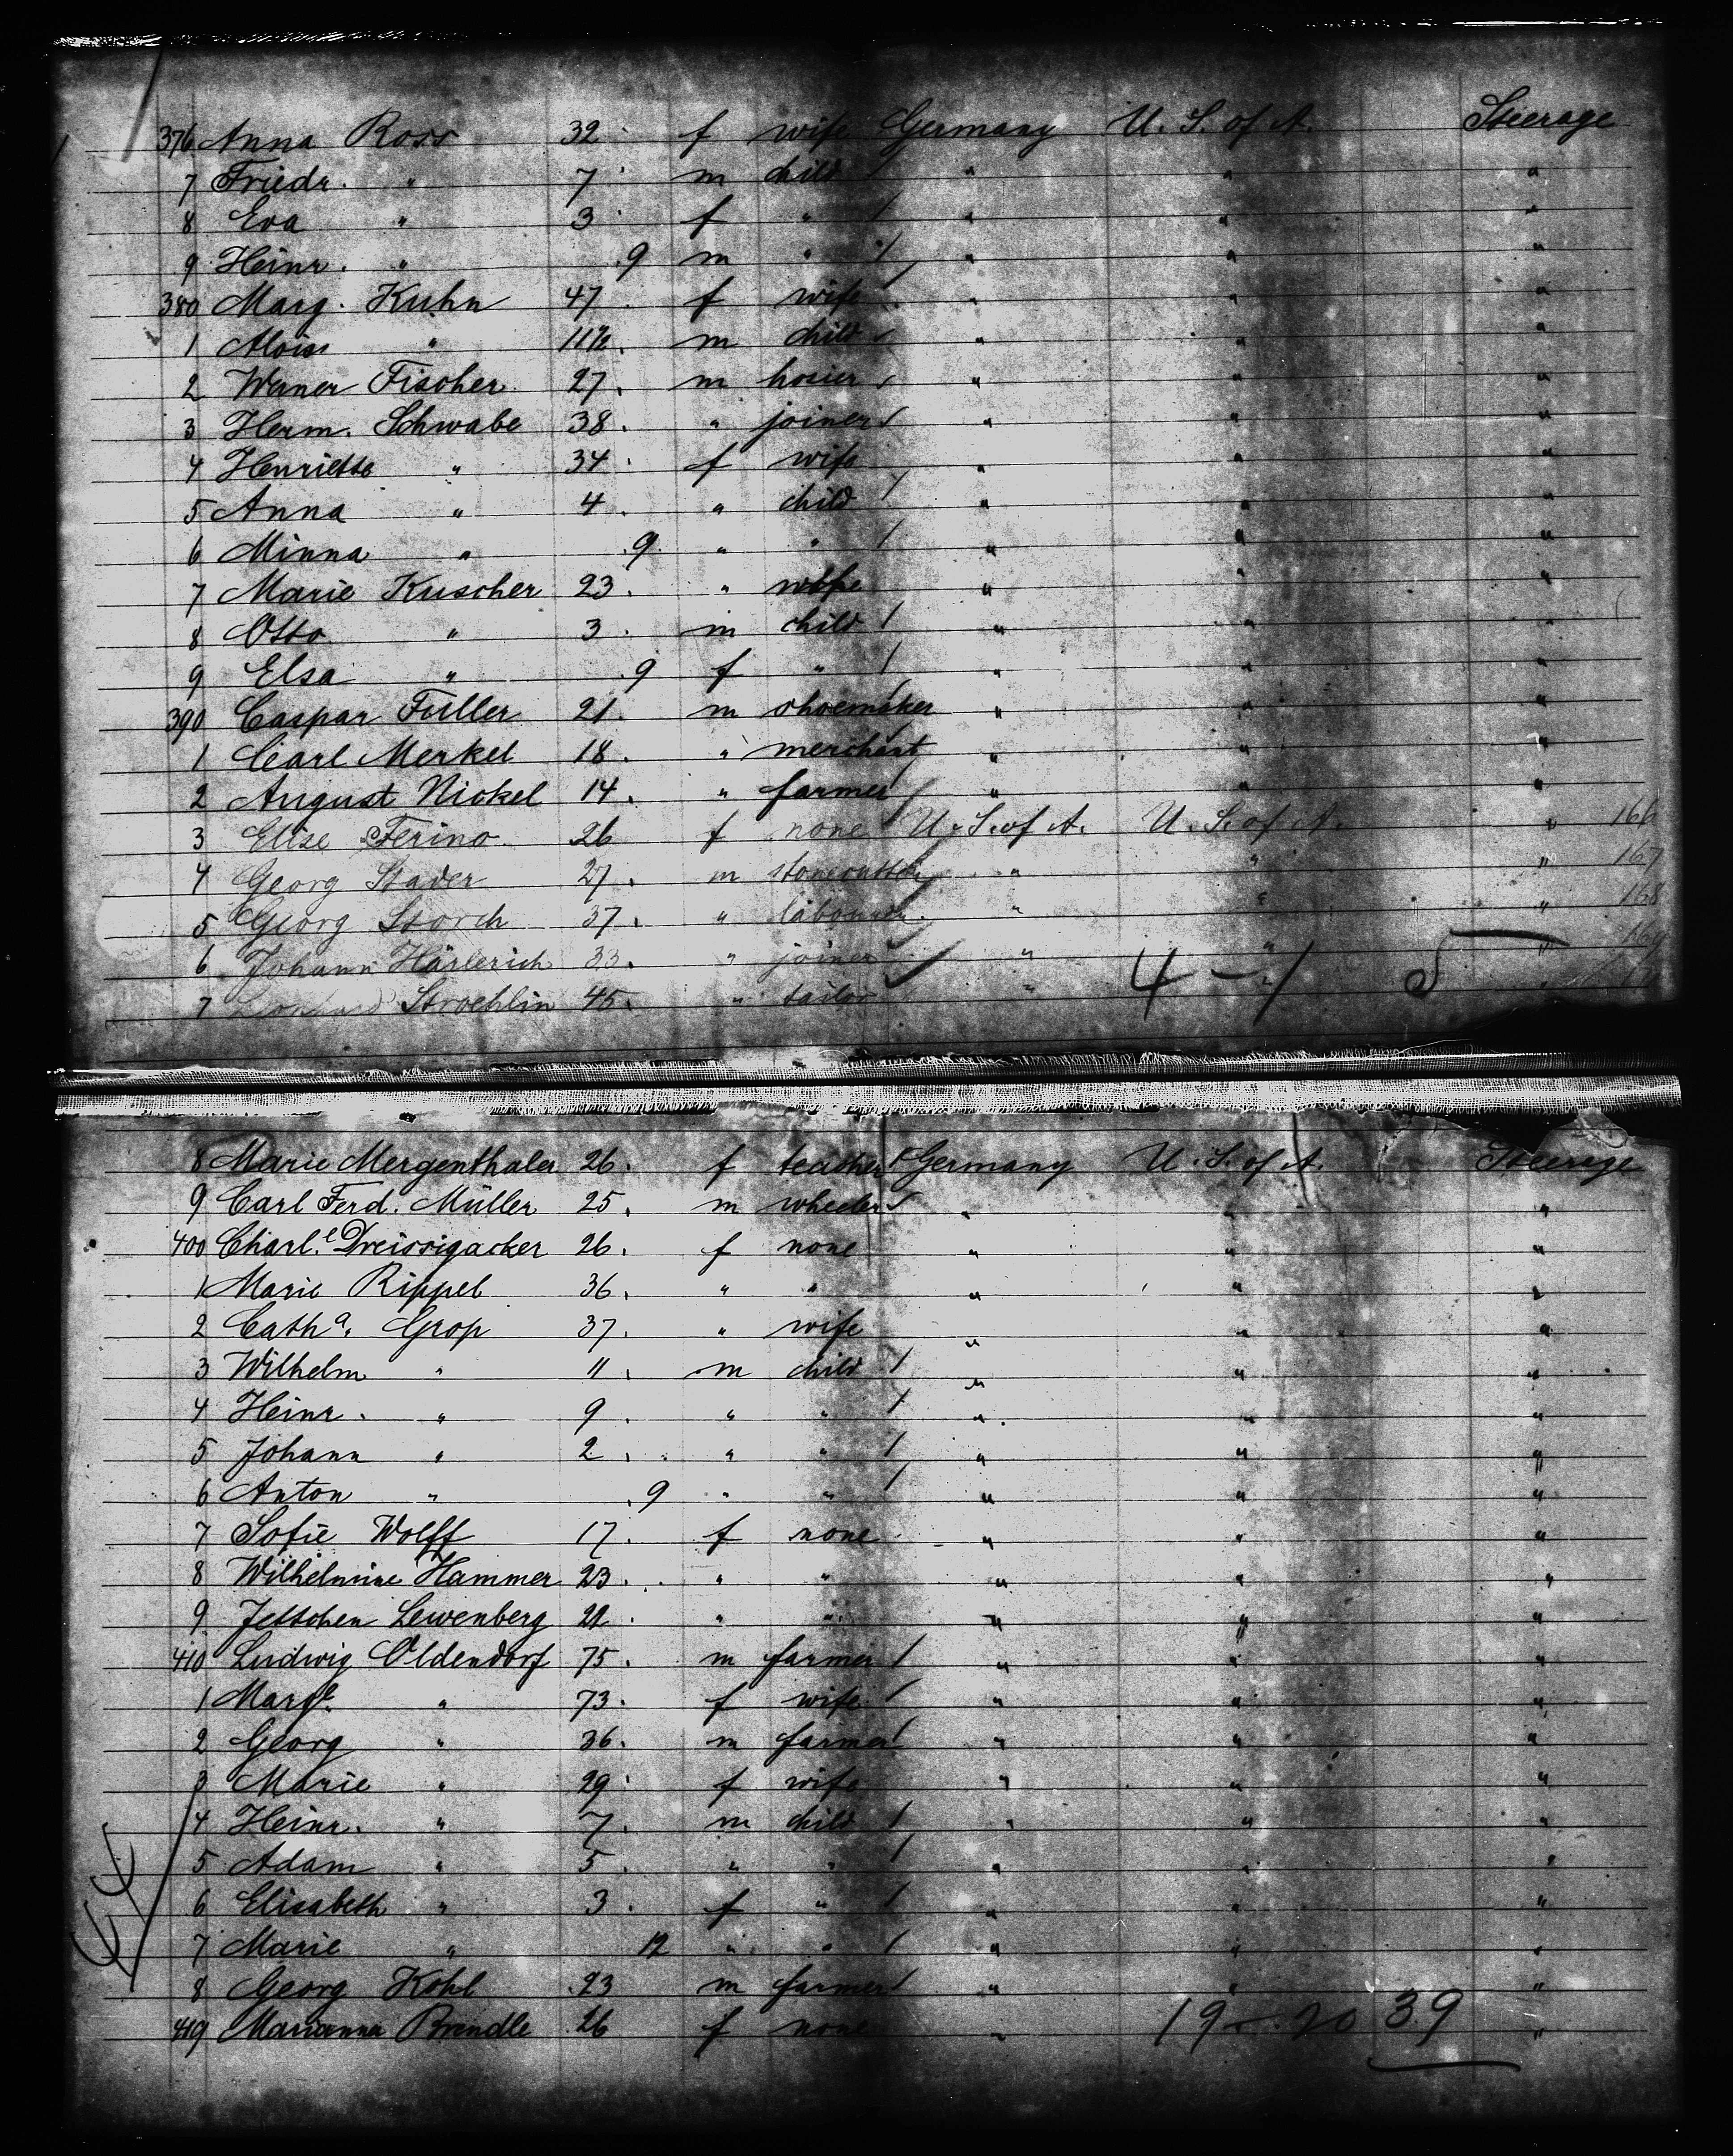 376 Anna Ross 32 f wife Germany U. S. of A. Steerage
7 Friedr. " 7 m child " " "
8 Eva " 3 f " " " "
9 Heinr. " .9 m " " " "
380 Marg. Kuhn 47 f wife " " "
1 Alois " 11½ m child " " "
2 Werner Fischer 27 m hosier " " "
3 Herm. Schwabe 38 " joiner " " "
4 Henriette " 34 f wife " " "
5 Anna " 4 " child " " "
6 Minna " .9 " " " " "
7 Marie Kuscher 23 " wife " " "
8 Otto " 3 m child " " "
9 Elsa " .9 f " " " "
390 Caspar Füller 21 m shoemaker " " "
1 Carl Merkel 18 " merchant " " "
2 August Nickel 14 " farmer " " "
3 Elise Ferino 26 f none U. S. of A. U. S. of A. " 166
4 Georg Stader 27 m stonecutter " " " 167
5 Georg Storch 37 " labourer " " " 168
6 Johann Härlerich 33 " joiner " " " 169
7 Leonhard Stroehlin 45 " tailor " " "
4 – 1 5
8 Marie Mergenthaler 26 f teacher Germany U. S. of A. Steerage
9 Carl Ferd. Müller 25 m wheeler " " "
400 Charl.e Dreissigacker 26 f none " " "
1 Marie Rippel 36 " " " " "
2 Catha. Grop 37 " wife " " "
3 Wilhelm " 11 m child " " "
4 Heinr. " 9 " " " " "
5 Johann " 2 " " " " "
6 Anton " .9 " " " " "
7 Sofie Wolff 17 f none " " "
8 Wilhelmine Hammer 23 " " " " "
9 Jettchen Lewenberg 21 " " " " "
410 Ludwig Oldendorf 75 m farmer " " "
1 Marge. " 73 f wife " " "
2 Georg " 36 m farmer " " "
3 Marie " 29 f wife " " "
4 Heinr. " 7 m child " " "
5 Adam " 5 " " " " "
6 Elisabeth " 3 f " " " "
7 Marie " 12 " " " " "
8 Georg Kohl 23 m farmer " " "
419 Marianna Brendle 26 f none " "
19 – 20 39